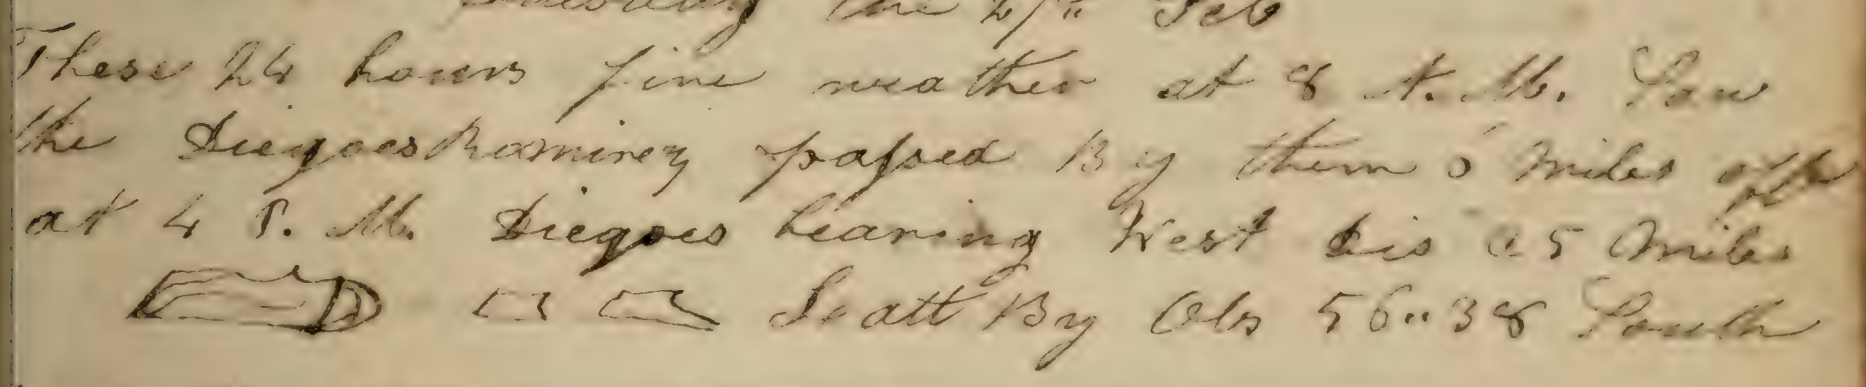 the Feb
These 24 hours fine weather at 8 A. M. Saw
the Diegoes Ramirez passed By them 5 miles off
at 4 P. M. Diegoes bearing West dis 25 miles
Latt By Obs 56.. 38 South